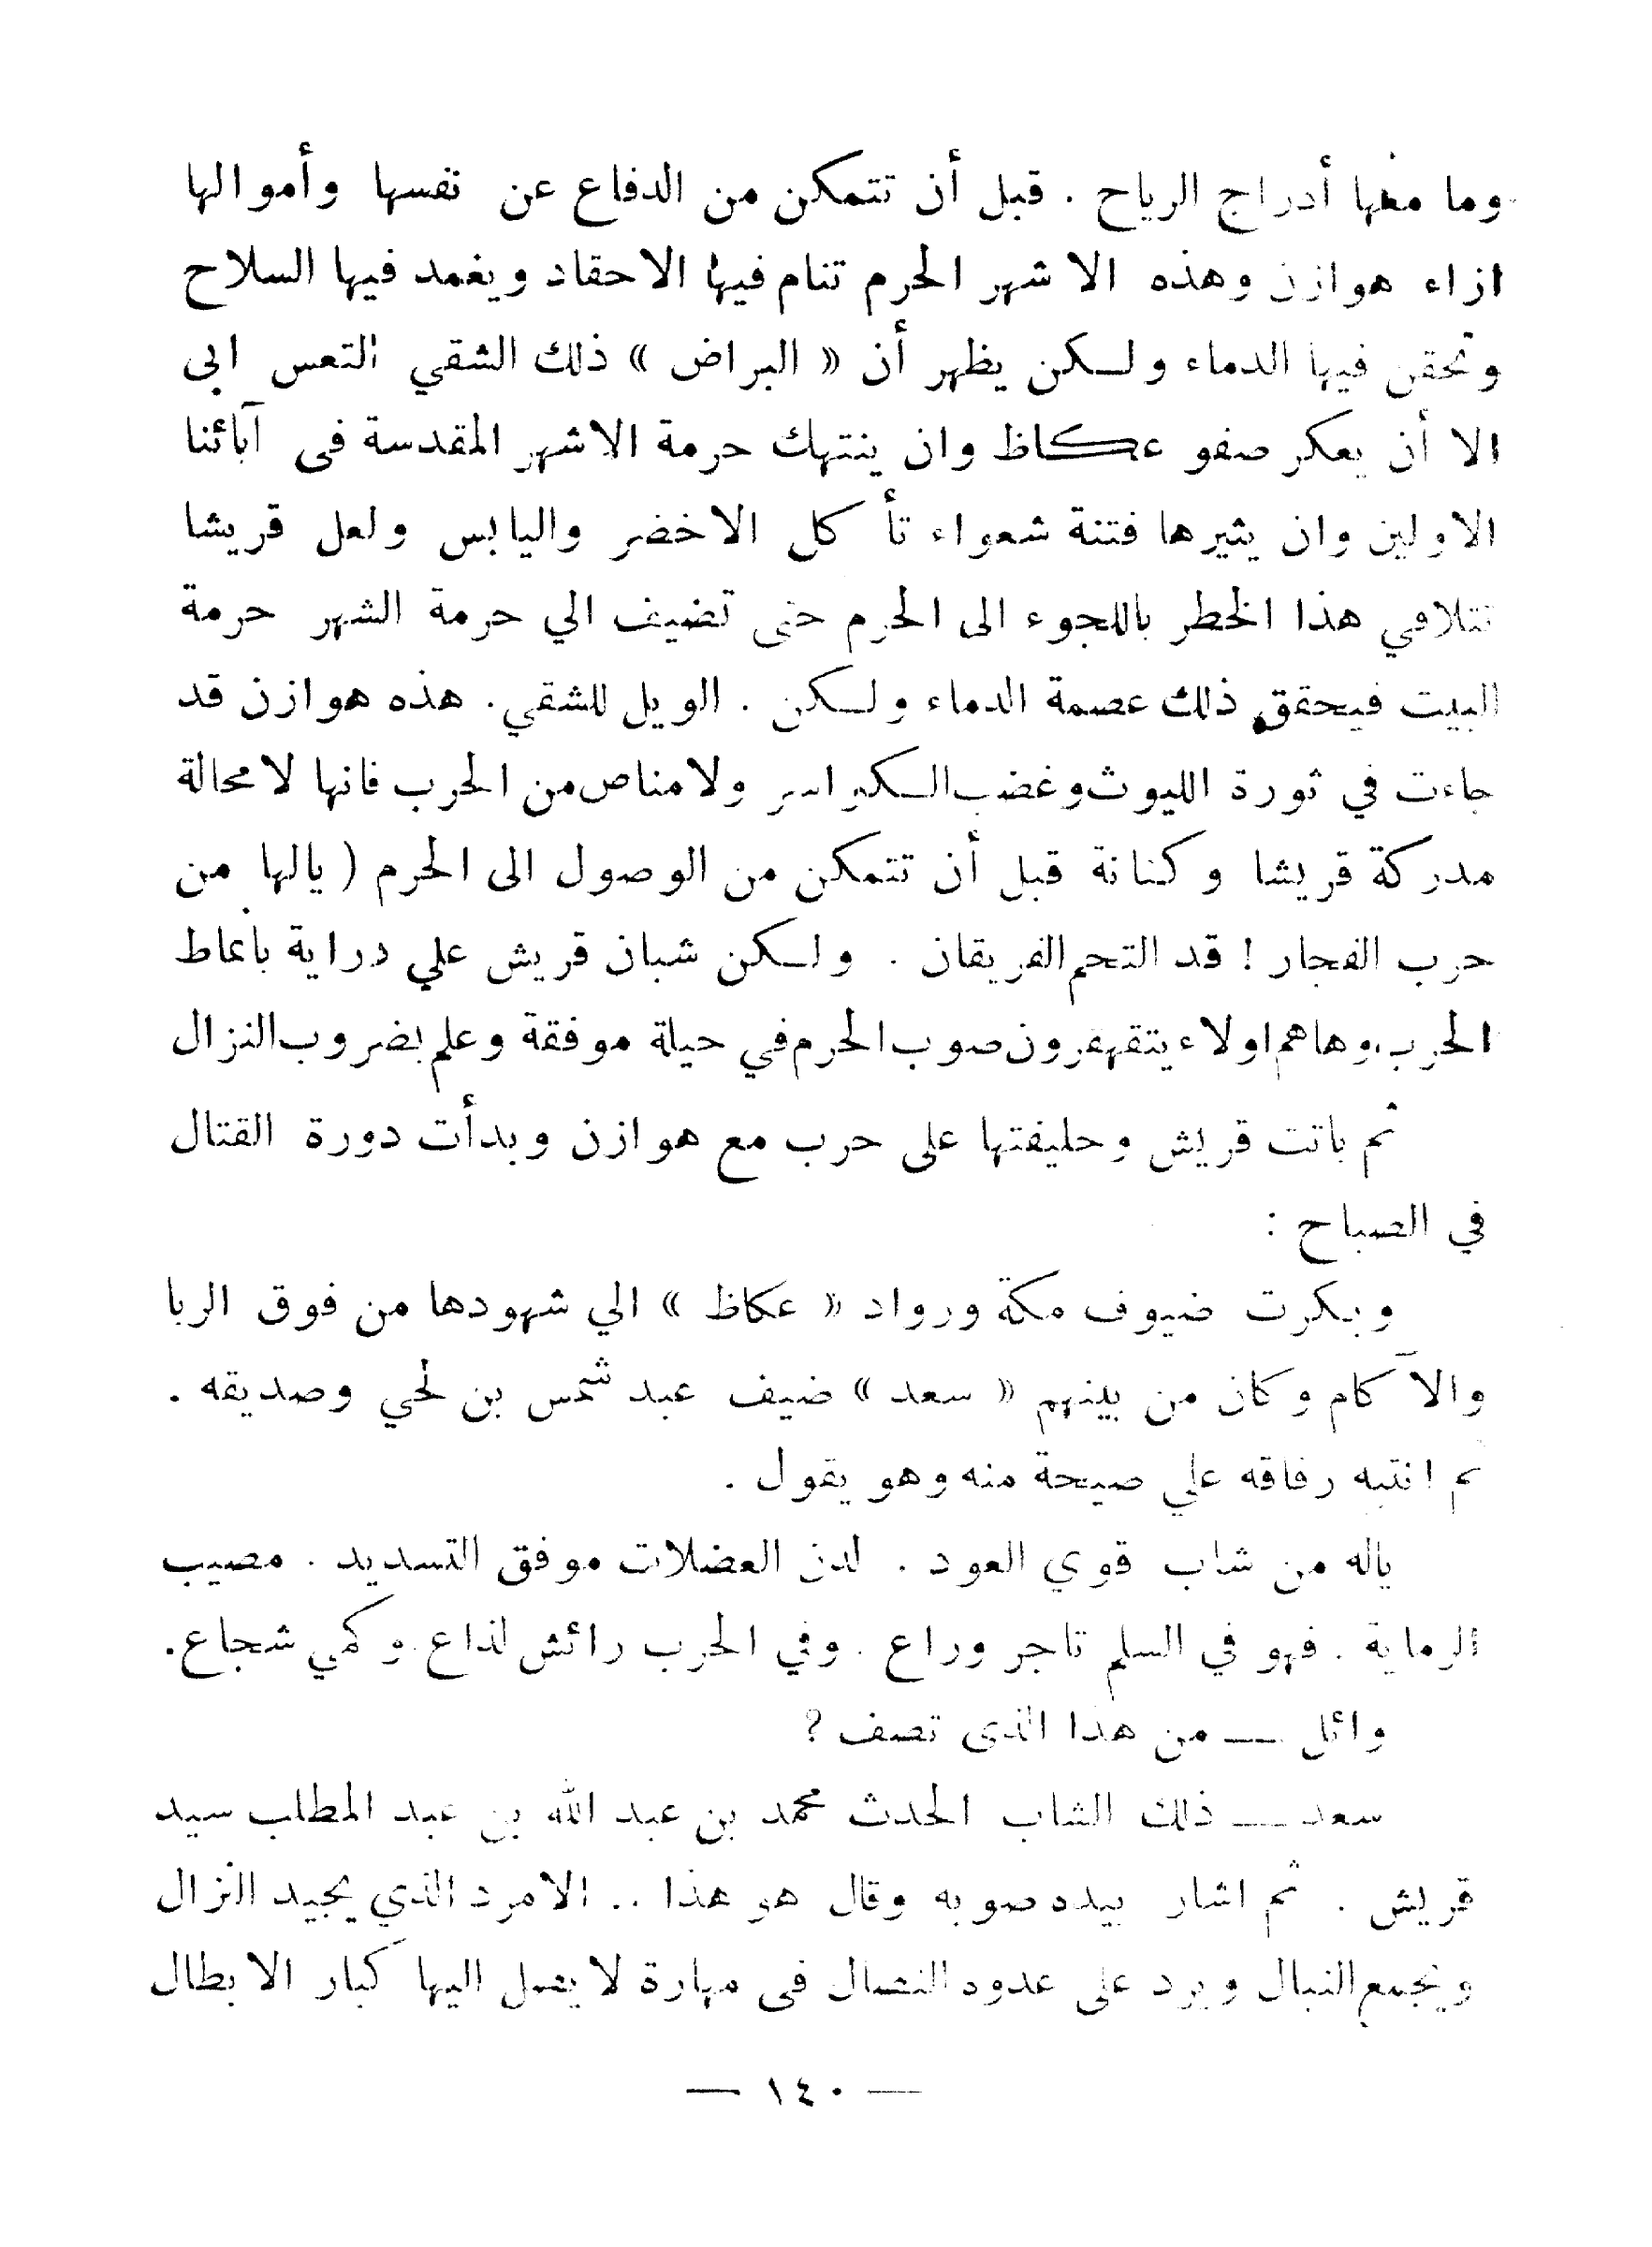 وما معها أدراج الرياح . قبل أن تتمكن من الدفاع عن نفسها وأموالها
ازاء هوازن وهذه الاشهر الحرم تنام فيها الاحقاد ويغمد فيها السلاح
وتحقن فيها الدماء ولكن يظهر أن « البراض » ذلك الشقي التعس ابى
الا أن يعكر صفو عكاظ وان ينتهك حرمة الاشهر المقدسة فى آبائنا
الاولين وان يثيرها فتنة شعواء تأكل الاخضر واليابس ولعل قريشا
تتلافي هذا الخطر باللجوء الى الحرم حتى تضيف الي حرمة الشهر حرمة
البيت فيحقق ذلك عصمة الدماء ولكن . الويل للشقي . هذه هوازن قد
جاءت في ثورة الليوث وغضب الكواسر ولا مناص من الحرب فانها لا محالة
مدركة قريشا وكنانة قبل أن تتمكن من الوصول الى الحرم ( يالها من
حرب الفجار ! قد التحم الفريقان . ولكن شبان قريش علي دراية بأنماط
الحرب ، وهاهم اولاء يتقهقرون صوب الحرم في حيلة موفقة وعلم بضروب النزال
ثم باتت قريش وحليفتها على حرب مع هوازن وبدأت دورة القتال
في الصباح :
وبكرت ضيوف مكة ورواد « عكاظ » الي شهودها من فوق الربا
والآكام وكان من بينهم « سعد » ضيف عبد شمس بن لحي وصديقه .
ثم انتبه رفاقه علي صيحة منه وهو يقول .
ياله من شاب قوي العود . لدن العضلات موفق التسديد . مصيب
الرماية . فهو في السلم تاجر وراع . وفي الحرب رائش لذاع . وكمي شجاع .
وائل — من هذا الذى تصف ؟
سعد — ذلك الشاب الحدث محمد بن عبد الله بن عبد المطلب سيد
قريش . ثم اشار بيده صوبه وقال هو هذا .. الامرد الذي يجيد النزال
ويجمع النبال ويرد على عدوه النصال فى مهارة لا يصل اليها كبار الابطال
— ١٤٠ —